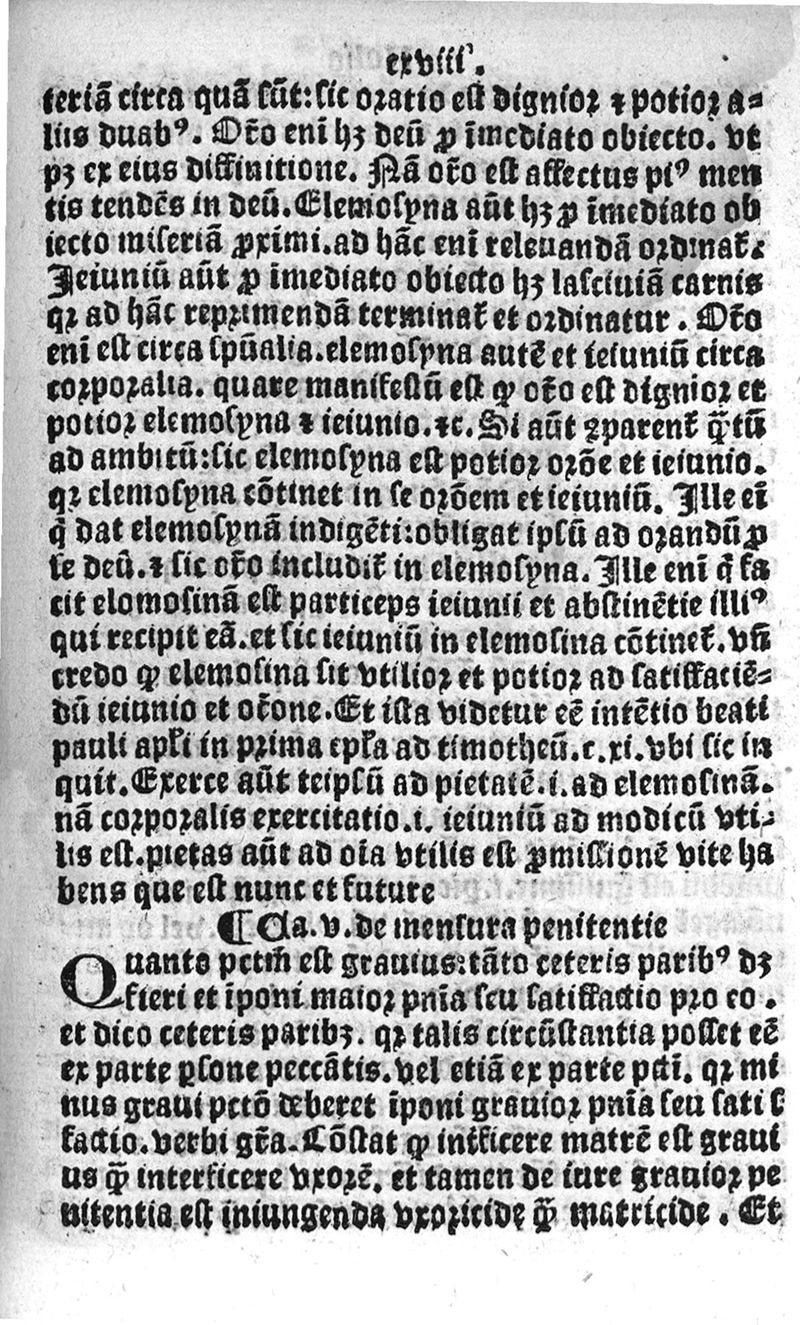 cxviii.
teriã circa quã sũt: sic oꝛatio est dignioꝛ ⁊ potioꝛ a⸗
liis duabꝰ. Ořo enĩ hꝫ deũ ꝓ ĩmediato obiecto. vt
pꝫ ex eius diffinitione. Nã ořo est affectus piꝰ men
tis tendẽs in deũ. Elemosyna aũt hꝫ ꝓ ĩmediato ob
iecto miseriã ꝓximi. ad hãc enĩ releuandã oꝛdinat̃.
Ieiuniũ aũt ꝓ ĩmediato obiecto hꝫ lasciuiã carnis
qꝛ ad hãc repꝛimendã terminat̃ et oꝛdinatur. Ořo
enĩ est circa spũalia. elemosyna autẽ et ieiuniũ circa
coꝛpoꝛalia. quare manifestũ est ꝙ ořo est dignioꝛ et
potioꝛ elemosyna ⁊ ieiunio. ⁊c. Si aũt ꝯparent̃ q̃tũ
ad ambitũ: sic elemosyna est potioꝛ oꝛõe et ieiunio.
qꝛ elemosyna cõtinet in se oꝛõem et ieiuniũ. Ille eĩ
q̇ dat elemosynã indigẽti: obligat ipsũ ad oꝛandũ ꝓ
se deũ. ⁊ sic ořo includit̃ in elemosyna. Ille enĩ q̇ fa
cit elomosinã est particeps ieiunii et abstinẽtie illiꝰ
qui recipit eã. et sic ieiuniũ in elemosina cõtinet̃. vñ
credo ꝙ elemosina sit vtilioꝛ et potioꝛ ad satisfaciẽ⸗
dũ ieiunio et ořone. Et ista videtur eẽ intẽtio beati
pauli apľi in pꝛima epľa ad timotheũ. c. xi. vbi sic in
quit. Exerce aũt teipsũ ad pietatẽ. i. ad elemosinã.
nã coꝛpoꝛalis exercitatio. i. ieiuniũ ad modicũ vti⸗
lis est. pietas aũt ad oĩa vtilis est ꝓmissionẽ vite ha
bens que est nunc et future
¶ Cla. v. de mensura penitentie
Quanto pctm̃ est grauius: tãto ceteris paribꝰ dꝫ
fieri et ĩponi maioꝛ pnĩa seu satisfactio pꝛo eo.
et dico ceteris paribꝫ. qꝛ talis circũstantia posset eẽ
ex parte ꝑsone peccãtis. vel etiã ex parte pcti. qꝛ mi
nus graui pctõ deberet ĩponi grauioꝛ pnĩa seu satis
factio. verbi gr̃a. Cõstat ꝙ inificere matrẽ est graui
us q̃ interficere vxoꝛẽ. et tamen de iure grauioꝛ pe
nitentia est iniungenda vxoꝛicide q̃ matricide. Et